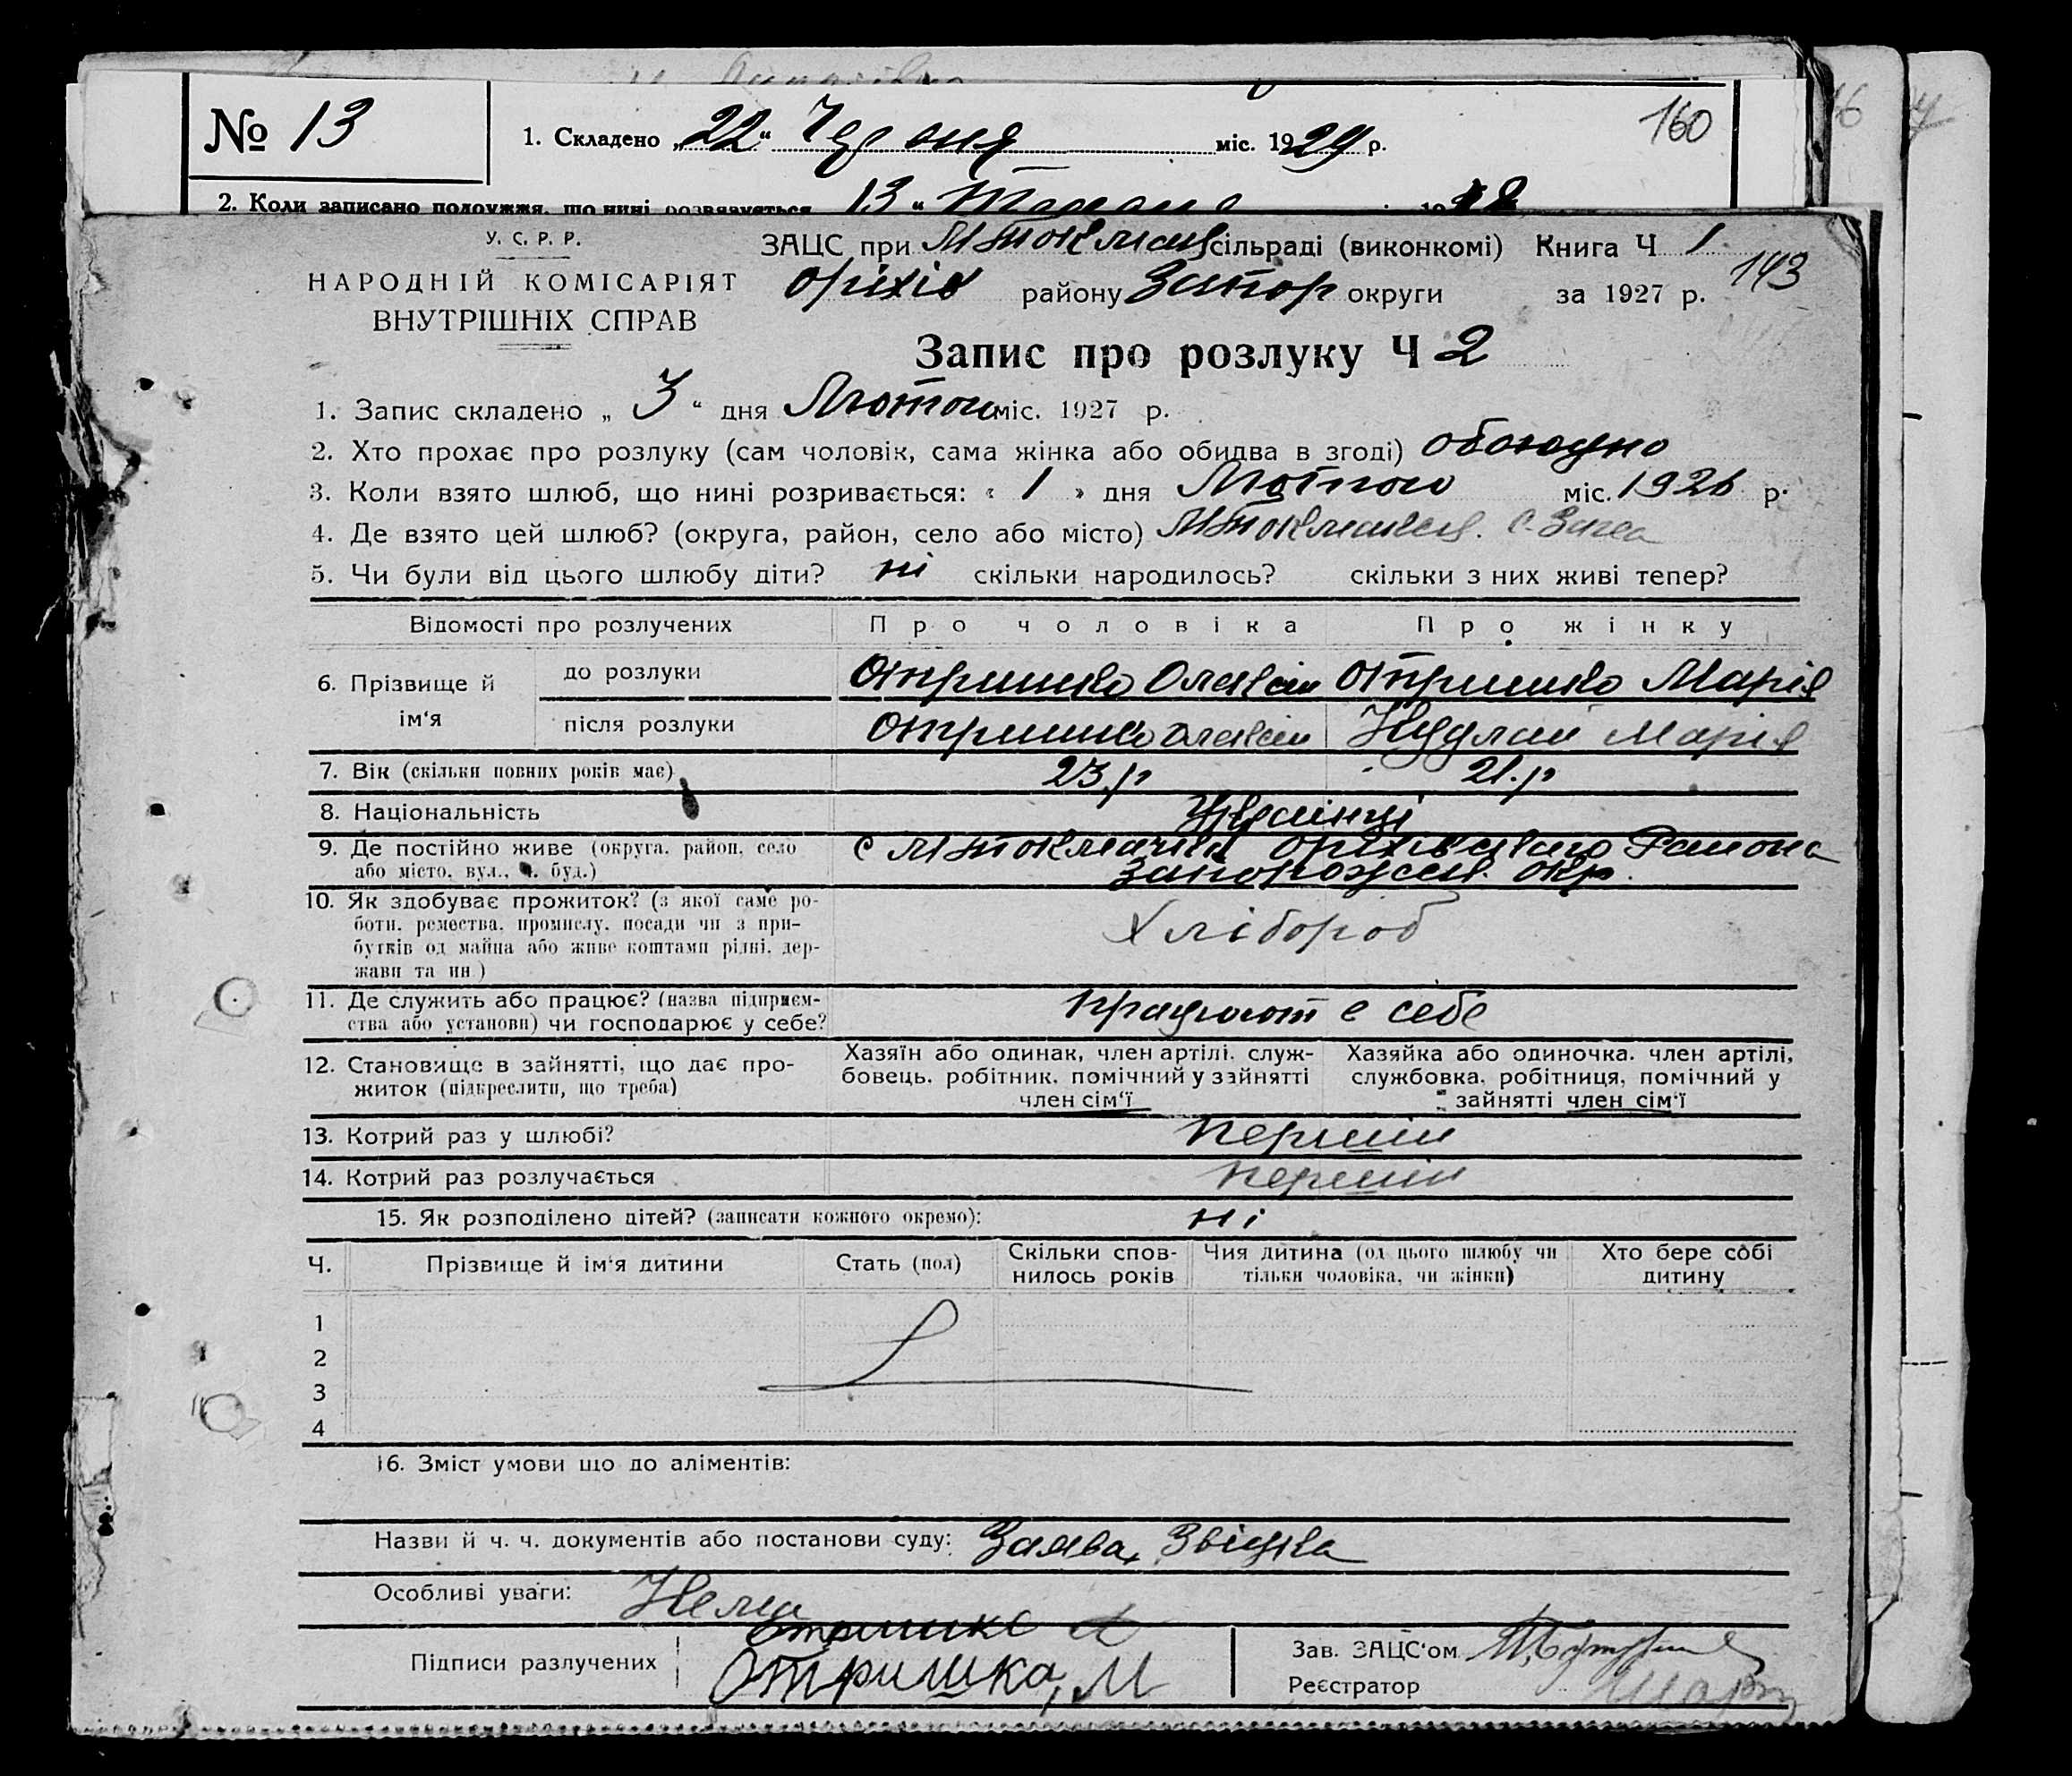 № 13
1. Складено „22“ Червня міс. 1929 р.
160
2. Коли записано подружжя, що нині розвязується 13 “
У. С. Р. Р.
НАРОДНІЙ КОМІСАРІЯТ
ВНУТРІШНІХ СПРАВ
ЗАЦС при МТокмац сільраді (виконкомі) Книга Ч 1
143
Оріхів району Запор округи за 1927 р.
Запис про розлуку Ч 2
1. Запис складено „ 3 “ дня Лютого міс. 1927 р.
2. Хто прохає про розлуку (сам чоловік, сама жінка або обидва в згоді) обоюдно
3. Коли взято шлюб, що нині розривається: « 1 » дня Лютого міс. 1926 р.
4. Де взято цей шлюб? (округа, район, село або місто) с. Загса
5. Чи були від цього шлюбу діти? ні скільки народилось? скільки з них живі тепер?
Відомості про розлучених Про чоловіка Про жінку
6. Прізвище й ім‘я
до розлуки Отришко Олексій Отришко Марія
після розлуки Отришко Олексій Нудлай Марія
7. Вік (скільки повних років має) 23.р 21.р
8. Національність Українці
9. Де постійно живе (округа, район, село або місто, вул., ч. буд.) с МТокмачка Оріхівського Района
Запорожськ. окр.
10. Як здобуває прожиток? (з якої саме роботи, ремества, промислу, посади чи з прибутків од майна або живе коштами рідні, держави та ин.) Хлібороб
11. Де служить або працює? (назва підприємства або установи) чи господарює у себе? працюют в себе
12. Становище в зайнятті, що дає прожиток (підкреслити, що треба)
Хазяїн або одинак, член артілі, службовець, робітник, помічний у зайнятті член сім‘ї
Хазяйка або одиночка, член артілі, службовка, робітниця, помічний у зайнятті член сім‘ї
13. Котрий раз у шлюбі? перший
14. Котрий раз розлучається перший
15. Як розподілено дітей? (записати кожного окремо): ні
Ч. Прізвище й ім‘я дитини Стать (пол) Скільки сповнилось років Чия дитина (од цього шлюбу чи тільки чоловіка, чи жінки) Хто бере собі дитину
1
2
3
4
16. Зміст умови що до аліментів:
Назви й ч. ч. документів або постанови суду: Заява, Звістка
Особливі уваги: Нема
Отришко А
Підписи разлучених Отришка, М
Зав. ЗАЦС‘ом
Реєстратор